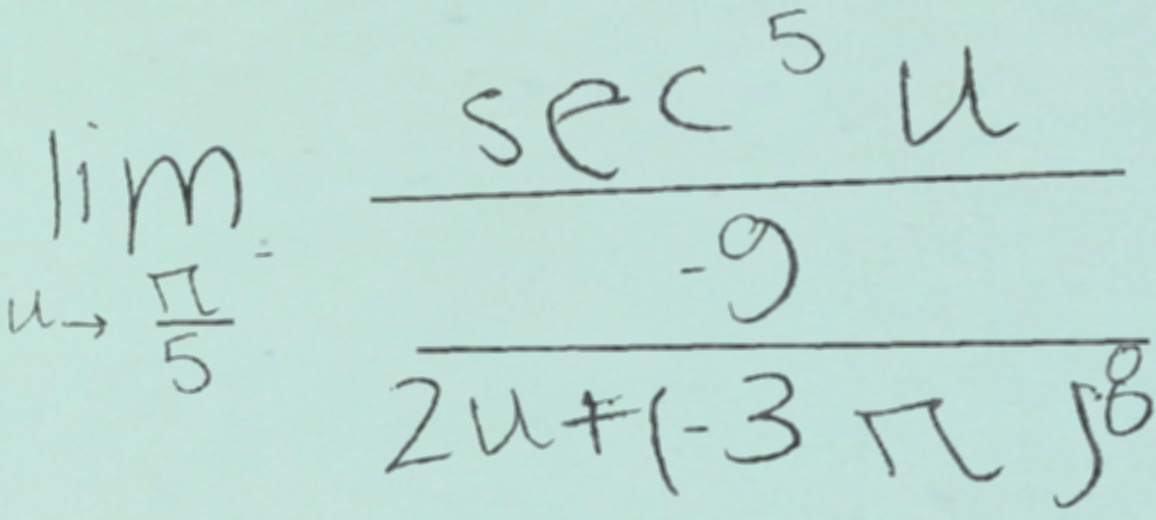 \lim_{u \to \frac{\pi}{5}^{-}} \frac{\sec^{5} u}{\frac{-9}{2u + (-3\pi)^{8}}}